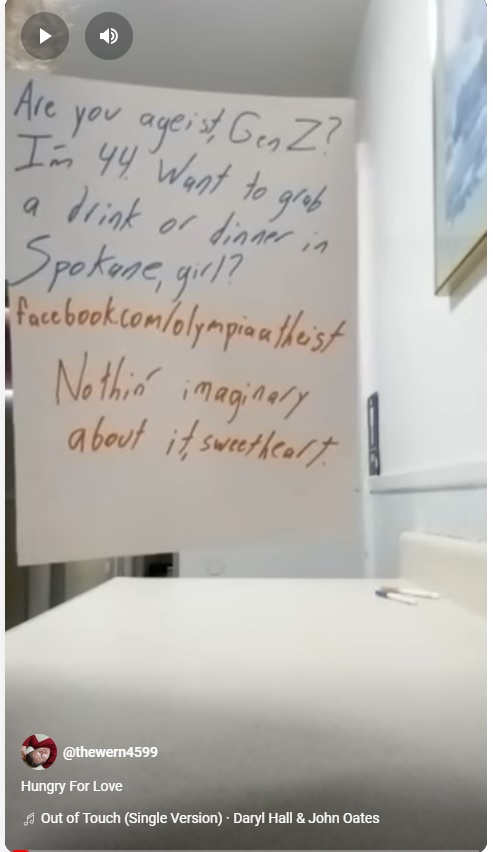 Are you ageist, Gen Z?
I'm 44. Want to grab
a drink or dinner in
Spokane, girl?
facebook.com/olympiaatheist
Nothin' imaginary
about it, sweetheart.
@thewern4599
Hungry For Love
Out of Touch (Single Version) · Daryl Hall & John Oates